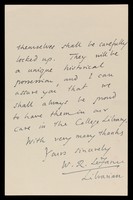 themselves shall be carefully
locked up. They will be
a unique historical
possession and I can
assure you that we
shall always be proud
to have them in our
care in the College Library.
With very many thanks
Yours sincerely
W. R.
Librarian